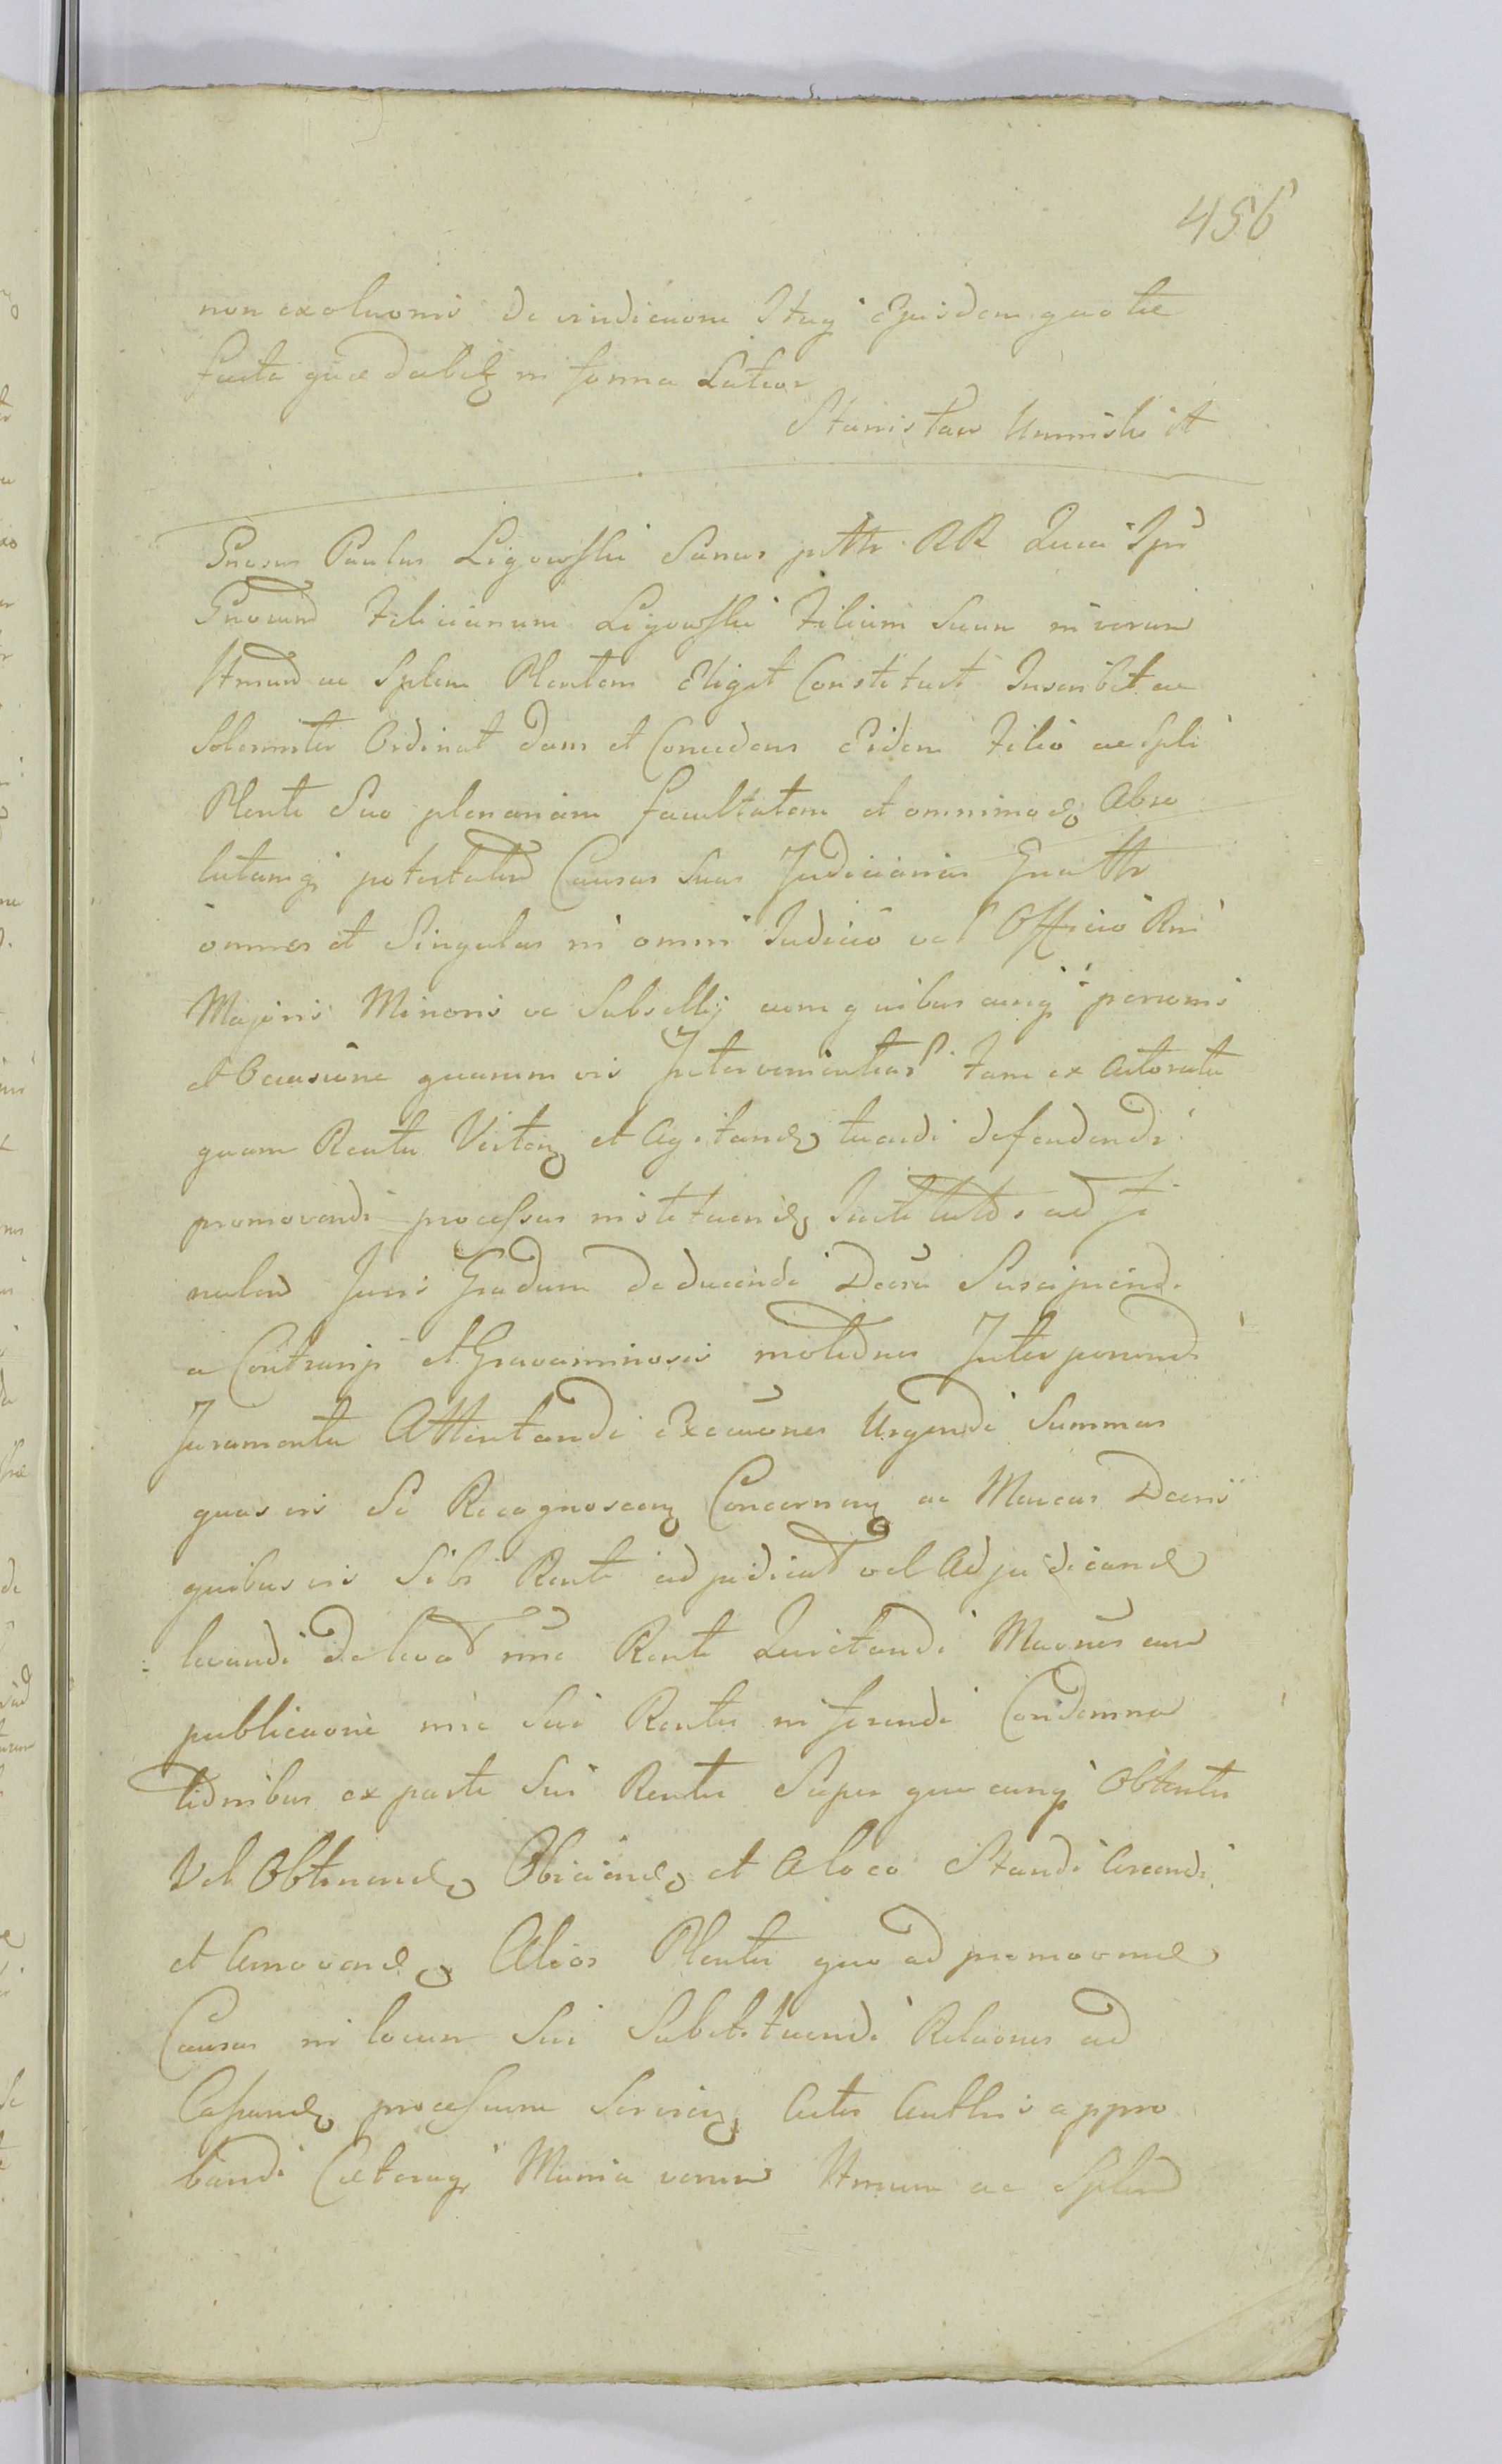 456
non exoluonis de evindicuone Ejusdem quo tie
facta in forma Lateor
Stanisław
Gnosus Paulus Ligowski Sanus ptthr RR Quia Ipse
Gnosum Felicianum Ligowski Filium Suum in verum
Itmum ac Splem Plentem Eligit Constituit Inscribit ac
Solemniter Ordinat Dans et Concedens Eidem Filio ac Spli
Plenti Suo plenariam facultatem et omnimod Abso
lutamq potestatem Causas Suas Judiciarias Gnalthr
omnes et Singulas in omni Judicio vel Officio Rni
Majoris Minoris ve Subsellij cum quibus cunq personis
et Occasione quarum vis Intervenientes Tam ex Actoratu
quam Reatu Verten et Agitand tuendi defendendi
promovendi processus instituend Institut ad fi
nalem Juris Gradum deducendi Decreta Suscipiendi
a Contrarijs et Gravaminosis motiones Interponendi
Juramenta Attentandi Execuones Urgendi Summas
quas vis Se Recognoscen Concernen ac Decris
quibus vis Sibi Rcnti adjudicat vel Adjudicand
levandi De levat nne Rcnti Quietandi
publicaone nne Sui Rcntis in ferendi Condemna
tionibus ex parte Sui Rcntis Super quo cunq Obtentis
Vel Obtinend Obiiciend et A loco Standi Arcendi
et Amovend Alios Plentes quo ad promovend
Causas in locum Sui Substituendi Relaones ad
Cassand processum Servien Acta Authis appro
bandi Caeteraq Munia verum Itmum ac Splem